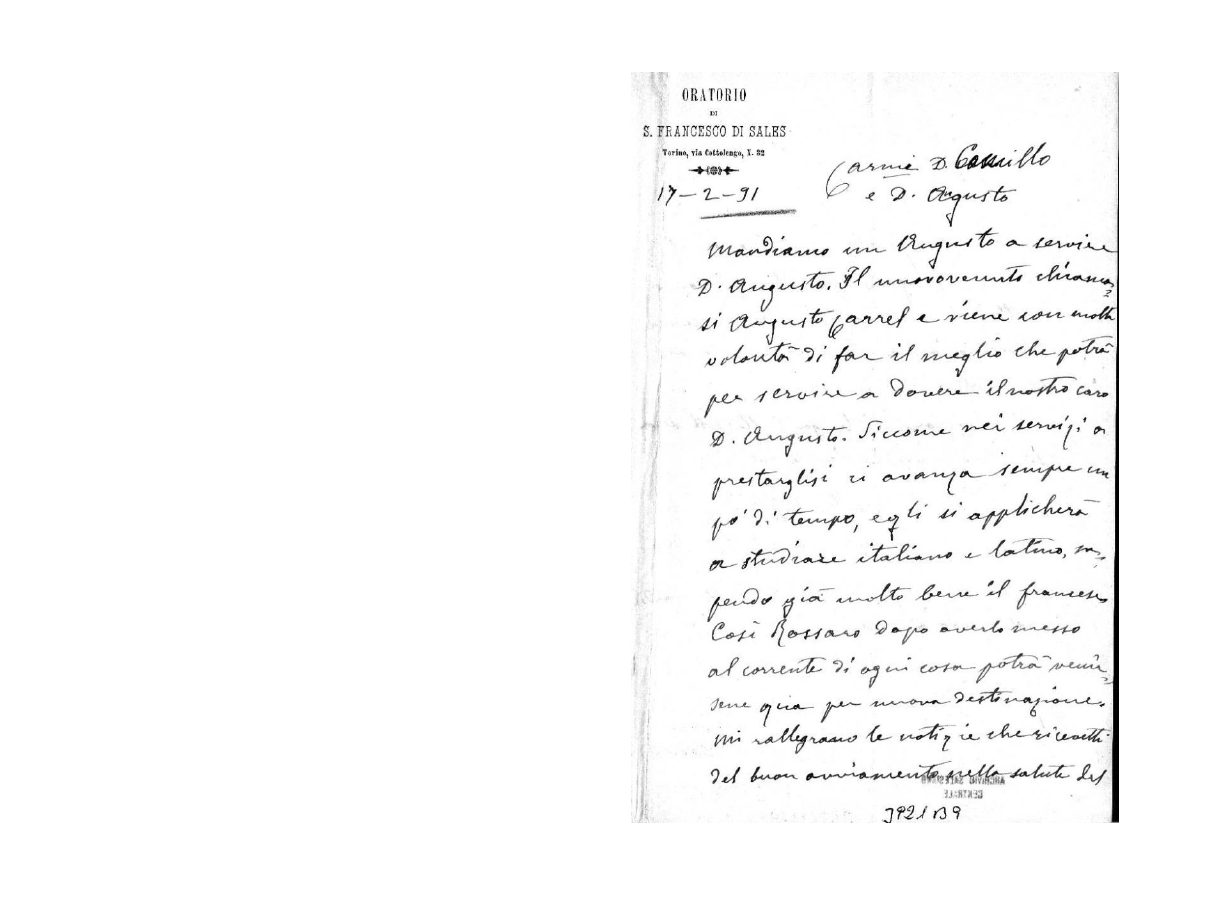 ORATORIO
DI
S. FRANCESCO DI SALES
Torino, via Cottolengo, N. 32
17-2-91
Carmi D. Camillo
e D. Augusto
Mandiamo un Augusto a servire
D. Augusto. Il nuovovenuto chiama=
si Augusto Carrel e viene con molta
volontà di far il meglio che potrà
per servire a dovere il nostro caro
D. Augusto. Siccome nei servizi a
prestarglisi ci avanza sempre un
po' di tempo, egli si applicherà
a studiare italiano e latino, sa=
pendo già molto bene il francese.
Così Rossaro dopo averlo messo
al corrente di ogni cosa potrà venir=
sene qua per nuova destinazione.
Mi rallegrano le notizie che ricevetti
del buon avviamento nella salute del
ARCHIVIO SALESIANO
CENTRALE